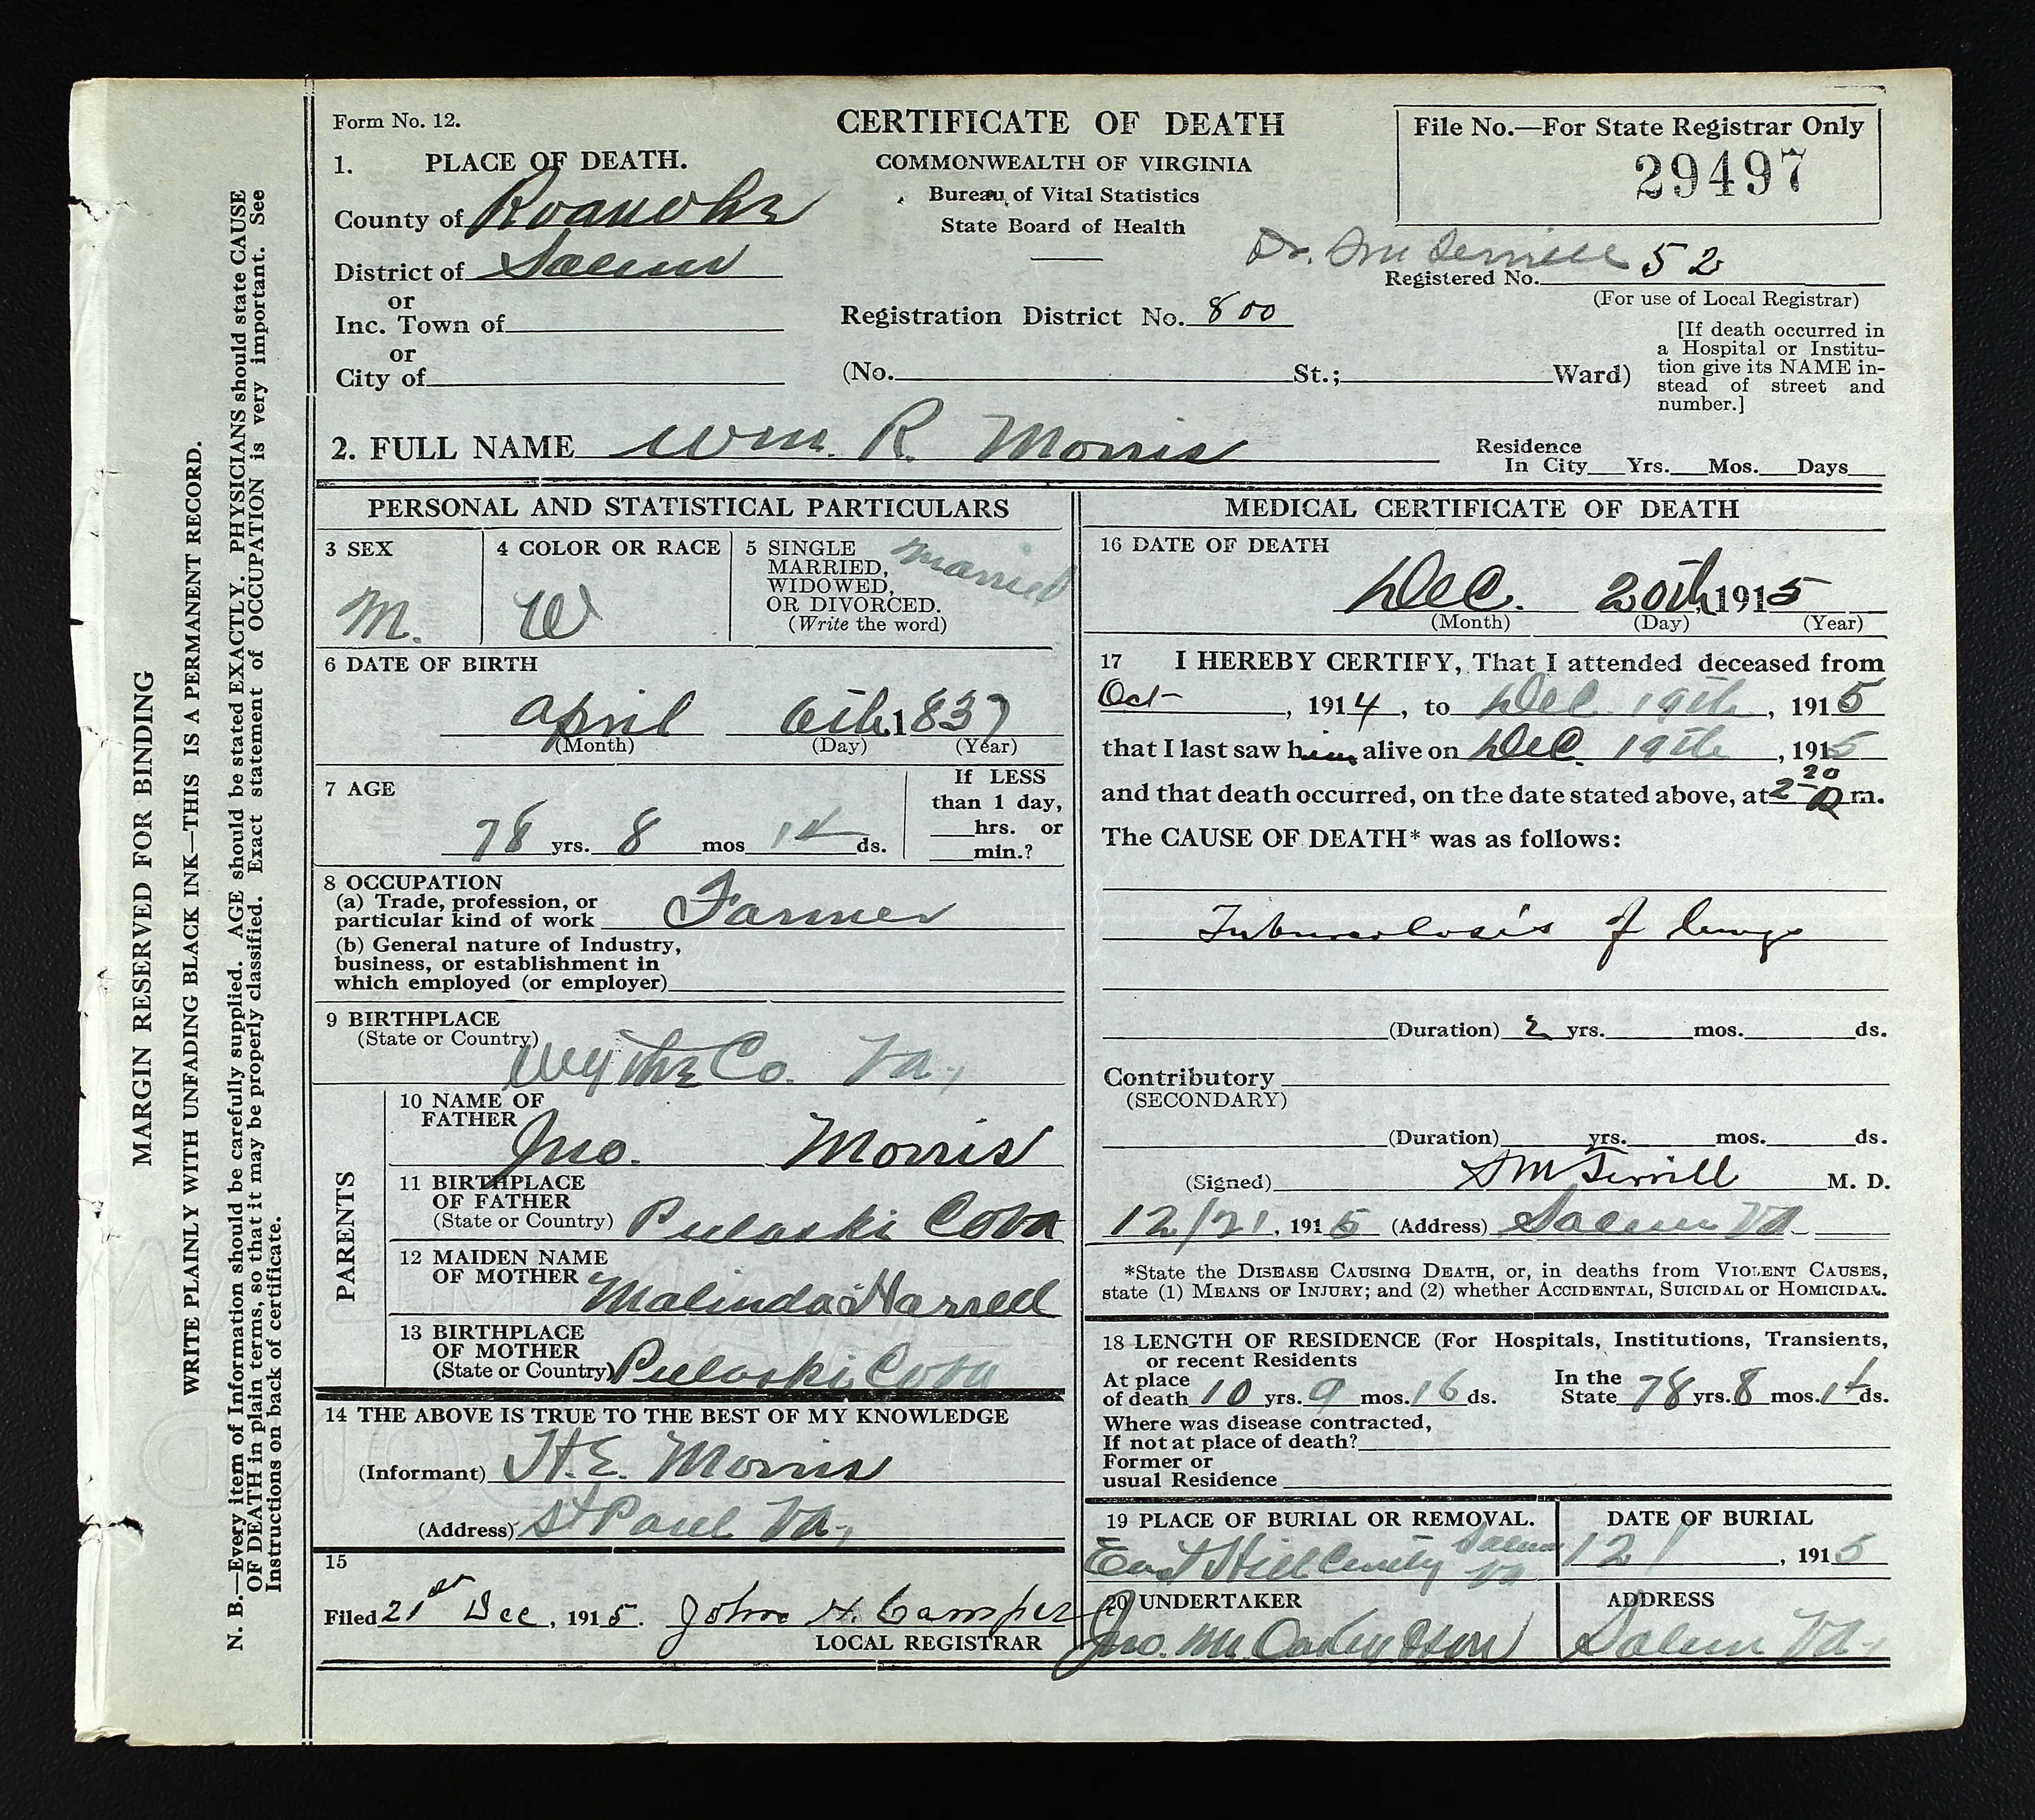 MARGIN RESERVED FOR BINDING
WRITE PLAINLY WITH UNFADING BLACK INK—THIS IS A PERMANENT RECORD.
N. B.—Every item of Information should be carefully supplied. AGE should be stated EXACTLY. PHYSICIANS should state CAUSE
OF DEATH in plain terms, so that it may be properly classified. Exact statement of OCCUPATION is very important. See
Instructions on back of certificate.
Form No. 12.
CERTIFICATE OF DEATH
COMMONWEALTH OF VIRGINIA
Bureau of Vital Statistics
State Board of Health
File No.—For State Registrar Only
29497
1. PLACE OF DEATH.
County of Roanoke
District of Salem
or
Inc. Town of
or
City of
Registration District No. 800
Dr.
Registered No. 52
(For use of Local Registrar)
(No. St.; Ward)
[If death occurred in
a Hospital or Institu-
tion give its NAME in-
stead of street and
number.]
2. FULL NAME Wm. R. Morris
Residence
In City Yrs. Mos. Days
PERSONAL AND STATISTICAL PARTICULARS
3 SEX
M.
4 COLOR OR RACE
W
5 SINGLE
MARRIED,
WIDOWED,
OR DIVORCED.
(Write the word)
married
6 DATE OF BIRTH
April 6th 1837
(Month) (Day) (Year)
7 AGE
78 yrs. 8 mos 14 ds.
If LESS
than 1 day,
hrs. or
min.?
8 OCCUPATION
(a) Trade, profession, or
particular kind of work Farmer
(b) General nature of Industry,
business, or establishment in
which employed (or employer)
9 BIRTHPLACE
(State or Country)
Wythe Co. Va.,
PARENTS
10 NAME OF
FATHER
Jno. Morris
11 BIRTHPLACE
OF FATHER
(State or Country) Pulaski Co Va
12 MAIDEN NAME
OF MOTHER Malinda Harrell
13 BIRTHPLACE
OF MOTHER
(State or Country) Pulaski Co Va
14 THE ABOVE IS TRUE TO THE BEST OF MY KNOWLEDGE
(Informant) H. E. Morris
(Address) St Paul Va,
15
Filed 21st Dec, 1915. John H. Camper
LOCAL REGISTRAR
MEDICAL CERTIFICATE OF DEATH
16 DATE OF DEATH
Dec. 20th 1915
(Month) (Day) (Year)
17 I HEREBY CERTIFY, That I attended deceased from
Oct , 1914, to Dec. 19th, 1915
that I last saw him alive on Dec. 19th, 1915
and that death occurred, on the date stated above, at 2 20 a m.
The CAUSE OF DEATH* was as follows:
Tuberculosis of lungs
(Duration) 2 yrs. mos. ds.
Contributory
(SECONDARY)
(Duration) yrs. mos. ds.
(Signed) M. D.
12/21, 1915 (Address) Salem Va
*State the DISEASE CAUSING DEATH, or, in deaths from VIOLENT CAUSES,
state (1) MEANS OF INJURY; and (2) whether ACCIDENTAL, SUICIDAL or HOMICIDAL.
18 LENGTH OF RESIDENCE (For Hospitals, Institutions, Transients,
or recent Residents
At place
of death 10 yrs. 9 mos. 16 ds. In the
State 78 yrs. 8 mos. 14 ds.
Where was disease contracted,
If not at place of death?
Former or
usual Residence
19 PLACE OF BURIAL OR REMOVAL.
East Hill Salem Va
DATE OF BURIAL
12/ , 1915
20 UNDERTAKER
Jno. M.
ADDRESS
Salem Va.,